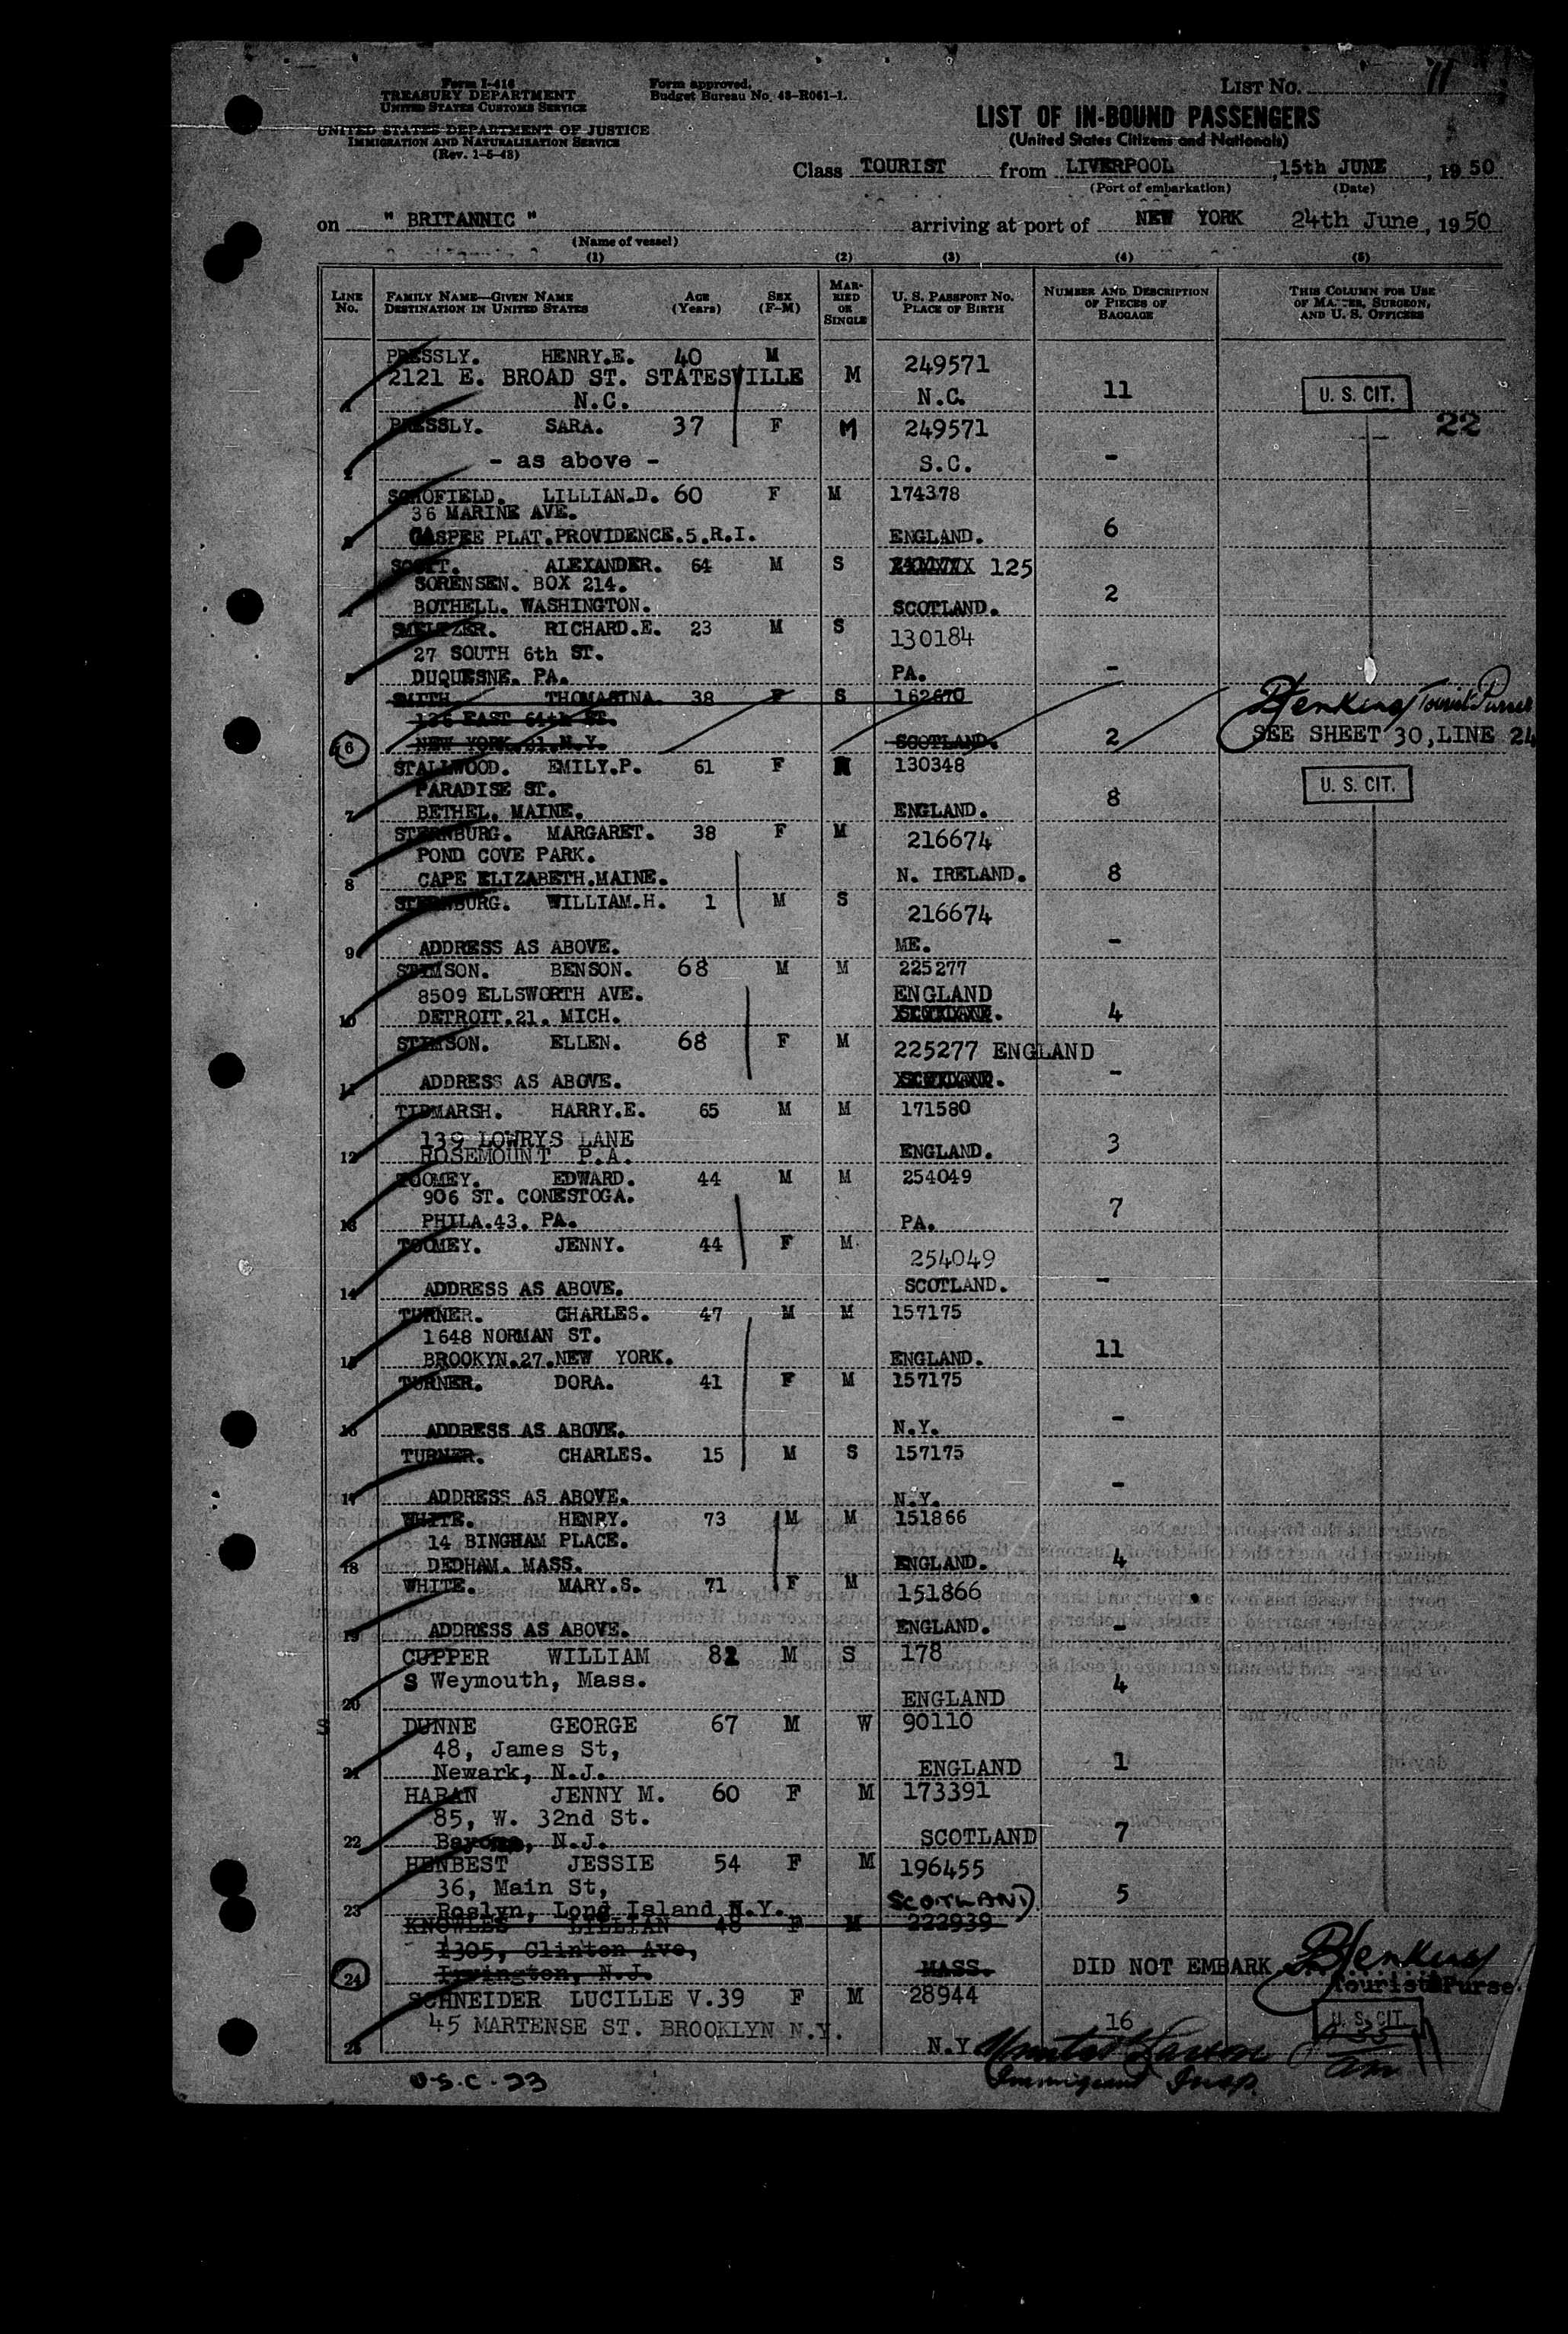 Form I-416
TREASURY DEPARTMENT
UNITED STATES CUSTOMS SERVICE
UNITED STATES DEPARTMENT OF JUSTICE
IMMIGRATION AND NATURALIZATION SERVICE
(Rev. 1-5-48)
Form approved.
Budget Bureau No. 43-R061-1.
LIST NO. 11
LIST OF IN-BOUND PASSENGERS
(United States Citizens and Nationals)
Class TOURIST from LIVERPOOL, 15th JUNE, 1950
(Port of embarkation) (Date)
on " BRITANNIC " arriving at port of NEW YORK 24th June, 1950
(Name of vessel)
(1) (2) (3) (4) (5)
LINE NO. FAMILY NAME—GIVEN NAME DESTINATION IN UNITED STATES AGE (Years) SEX (F-M) MARRIED OR SINGLE U. S. PASSPORT NO. PLACE OF BIRTH NUMBER AND DESCRIPTION OF PIECES OF BAGGAGE THIS COLUMN FOR USE OF MASTER, SURGEON, AND U. S. OFFICERS
PRESSLY. HENRY.E. 40 M 249571
2121 E. BROAD ST. STATESVILLE M
1 N.C. N.C. 11 U. S. CIT.
PRESSLY. SARA. 37 F M 249571 22
2 - as above - S.C. -
SCHOFIELD. LILLIAN.D. 60 F M 174378
36 MARINE AVE.
3 GASPEE PLAT.PROVIDENCE.5.R.I. ENGLAND. 6
SCOTT. ALEXANDER. 64 M S 125
SORENSEN. BOX 214.
4 BOTHELL. WASHINGTON. SCOTLAND. 2
SMELTZER. RICHARD.E. 23 M S 130184
27 SOUTH 6th ST.
5 DUQUESNE. PA. PA. -
SMITH THOMASINA. 38 F S 162670 BJenkins Tourist Purser
136 EAST 64th ST.
6 NEW YORK.21.N.Y. SCOTLAND. 2 SEE SHEET 30, LINE 24
STALLWOOD. EMILY.P. 61 F 130348
PARADISE ST. U. S. CIT.
7 BETHEL. MAINE. ENGLAND. 8
STERNBURG. MARGARET. 38 F M 216674
POND COVE PARK.
8 CAPE ELIZABETH.MAINE. N. IRELAND. 8
STERNBURG. WILLIAM.H. 1 M S 216674
9 ADDRESS AS ABOVE. ME. -
STIMSON. BENSON. 68 M M 225277
8509 ELLSWORTH AVE. ENGLAND
10 DETROIT.21. MICH. 4
STIMSON. ELLEN. 68 F M 225277 ENGLAND
11 ADDRESS AS ABOVE. -
TIDMARSH. HARRY.E. 65 M M 171580
139 LOWRYS LANE
12 ROSEMOUNT P.A. ENGLAND. 3
TOOMEY. EDWARD. 44 M M 254049
906 ST. CONESTOGA.
13 PHILA.43. PA. PA. 7
TOOMEY. JENNY. 44 F M. 254049
14 ADDRESS AS ABOVE. SCOTLAND. -
TURNER. CHARLES. 47 M M 157175
1648 NORMAN ST.
15 BROOKYN.27.NEW YORK. ENGLAND. 11
TURNER. DORA. 41 F M 157175
16 ADDRESS AS ABOVE. N.Y. -
TURNER. CHARLES. 15 M S 157175
17 ADDRESS AS ABOVE. N.Y. -
WHITE. HENRY. 73 M M 151866
14 BINGHAM PLACE.
18 DEDHAM. MASS. ENGLAND. 4
WHITE. MARY.S. 71 F M 151866
19 ADDRESS AS ABOVE. ENGLAND. -
CUPPER WILLIAM 82 M S 178
S Weymouth, Mass.
20 ENGLAND 4
S DUNNE GEORGE 67 M W 90110
48, James St,
21 Newark, N.J. ENGLAND 1
HARAN JENNY M. 60 F M 173391
85, W. 32nd St.
22 Bayonne, N.J. SCOTLAND 7
HENBEST JESSIE 54 F M 196455
36, Main St,
23 Roslyn, Long Island N.Y. SCOTLAND 5
KNOWLES LILLIAN 48 F M 222939
1305, Clinton Ave,
24 Irvington, N.J. MASS. DID NOT EMBARK BJenkins
Tourist Purser
SCHNEIDER LUCILLE V. 39 F M 28944
45 MARTENSE ST. BROOKLYN N.Y. 16 U. S. CIT.
25 N.Y.
U.S.C. 23 Immigrant Insp.